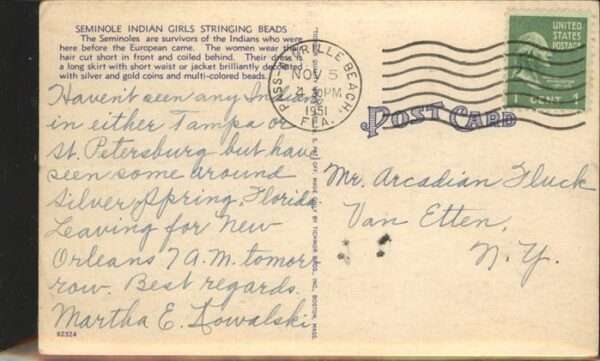 SEMINOLE INDIAN GIRLS STRINGING BEADS
The Seminoles are survivors of the Indians who were
here before the European came. The women wear their
hair cut short in front and coiled behind. Their dress is
a long skirt with short waist or jacket brilliantly decorated
with silver and gold coins and multi-colored beads.
Haven't seen any Indians
in either Tampa or
St. Petersburg but have
seen some around
Silver Spring, Florida
Leaving for New
Orleans 7 A.M. tomor
row. Best regards.
Martha E. Kowalski
62324
MADE ONLY BY TICHNOR BROS., INC., BOSTON, MASS.
PASS-A-GRILLE BEACH,
NOV 5
4 30PM
1951
FLA.
UNITED
STATES
POSTAGE
CENT 1
POST CARD
Mr. Arcadian Fluck
Van Etten,
N.Y.